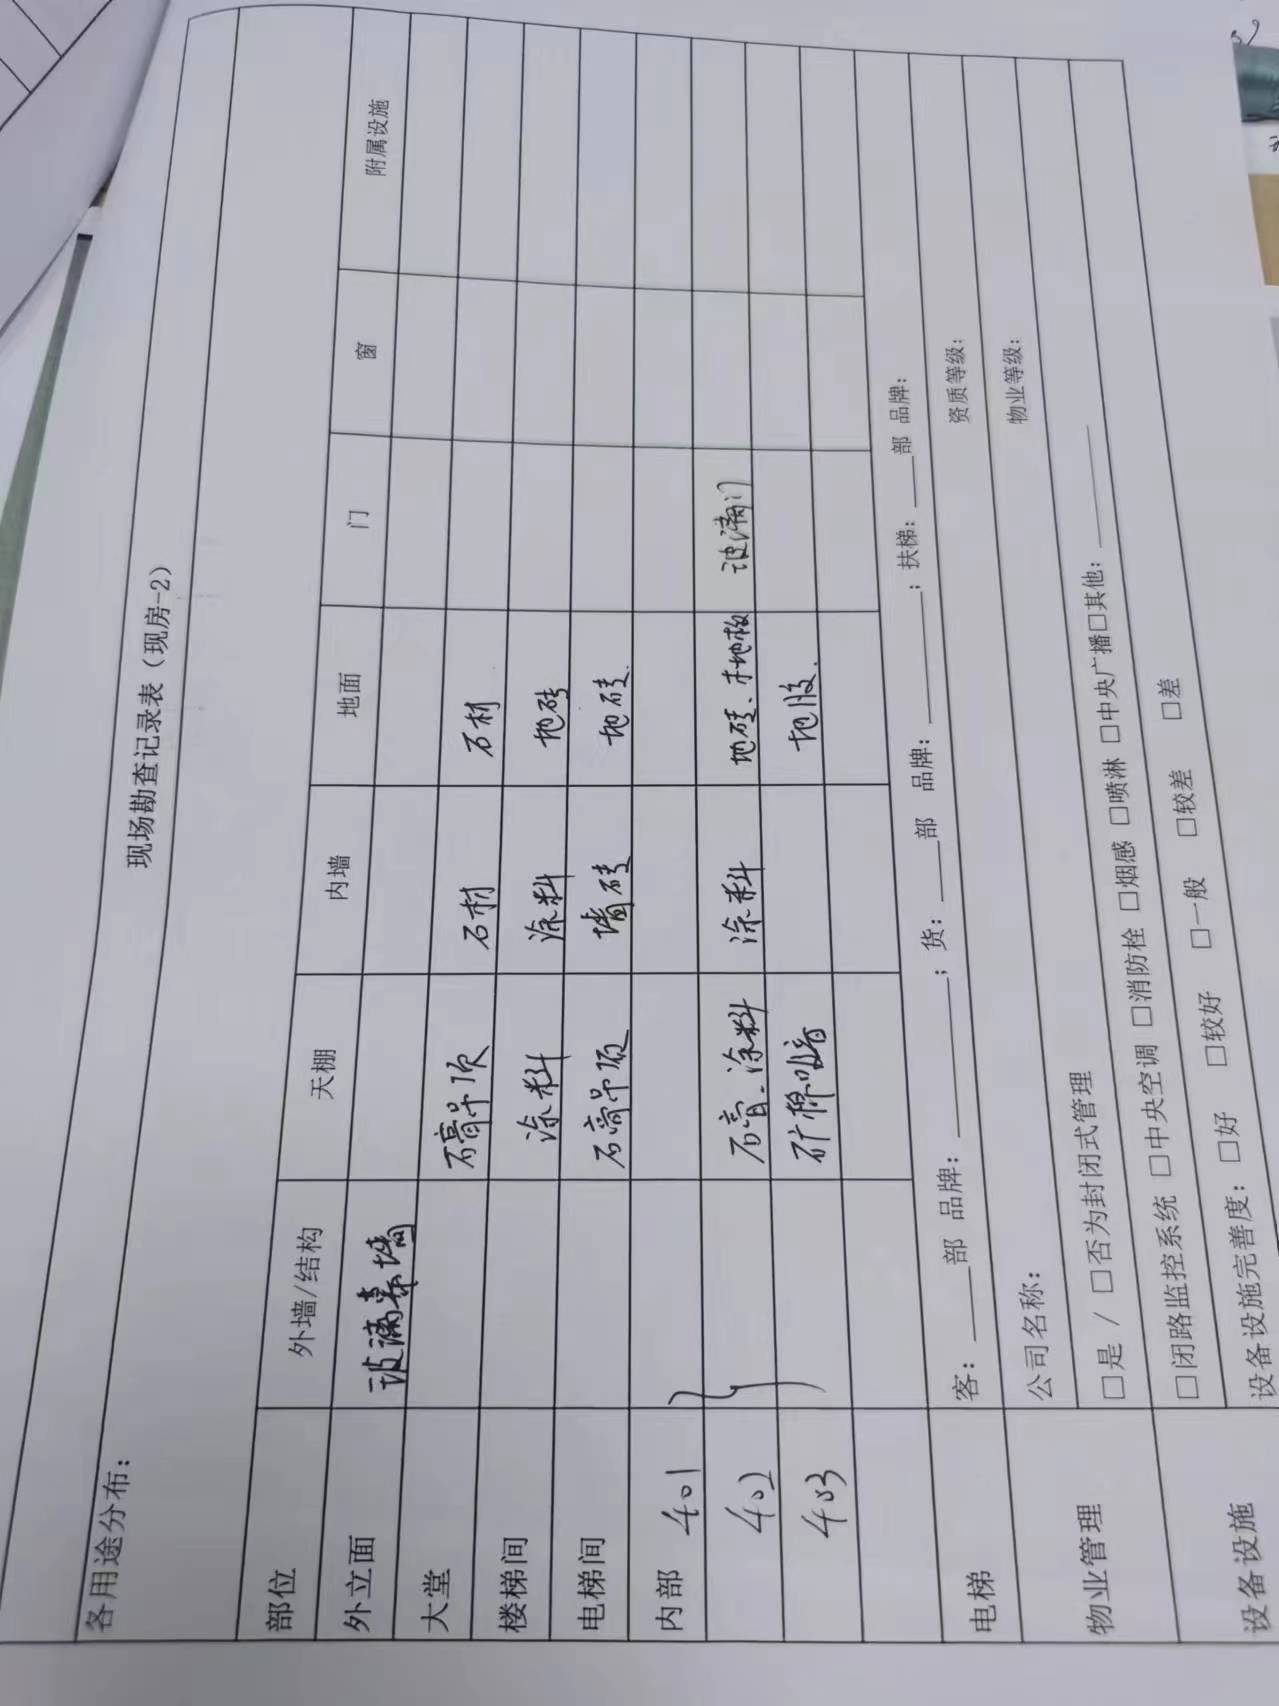 现场勘查记录表（现房-2）
各用途分布：
部位 外墙/结构 天棚 内墙 地面 门 窗 附属设施
外立面 玻璃幕墙
大堂 石膏吊顶 石材 石材
楼梯间 涂料 涂料 地砖
电梯间 石膏吊顶 墙砖 地砖
内部 401
402 石膏、涂料 涂料 地砖、木地板 玻璃门
403 矿棉吸音 地胶
电梯 客：____部 品牌：________；货：____部 品牌：________；扶梯：____部 品牌：
物业管理 公司名称： 资质等级：
□是 / □否为封闭式管理 物业等级：
设备设施 □闭路监控系统 □中央空调 □消防栓 □烟感 □喷淋 □中央广播 □其他：________
设备设施完善度：□好 □较好 □一般 □较差 □差